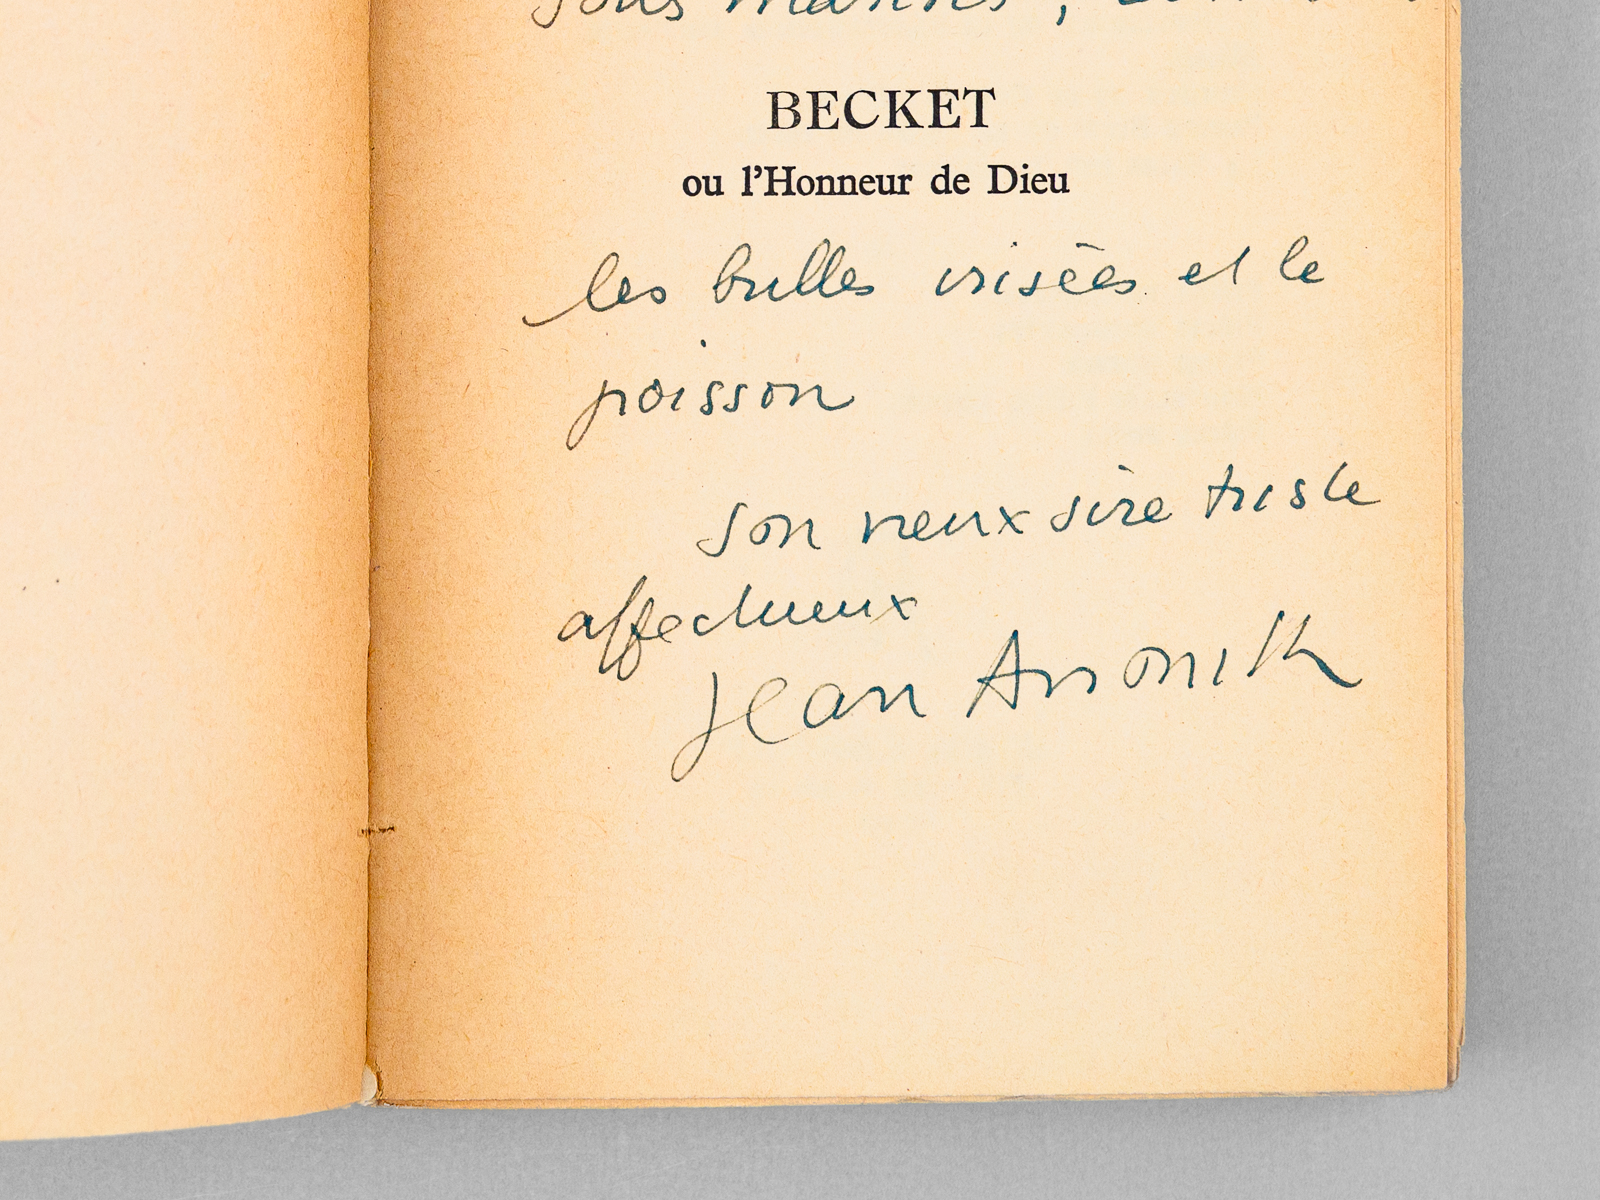 BECKET
ou l'Honneur de Dieu
les bulles irisées et le
poisson
Son vieux sire triste
affectueux
Jean Anouilh